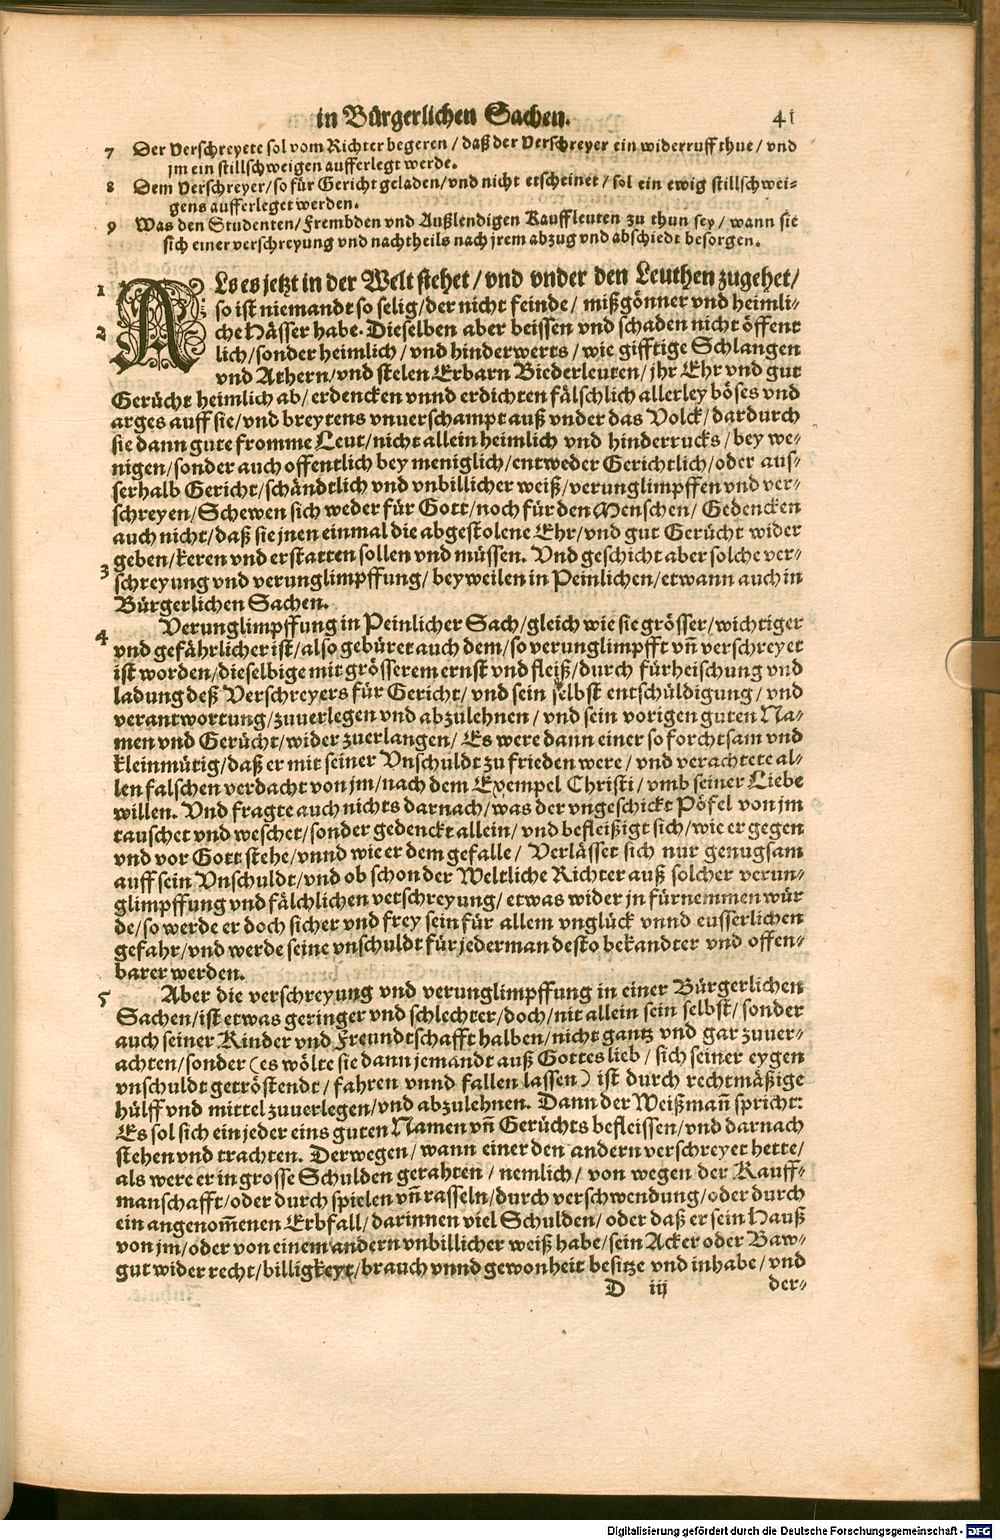 in Bürgerlichen Sachen. 41
7 Der Verschreyete sol vom Richter begeren / daß der Verschreyer ein widerruff thue / vnd
jm ein stillschweigen aufferlegt werde.
8 Dem Verschreyer / so für Gericht geladen / vnd nicht erscheinet / sol ein ewig stillschwei-
gens aufferleget werden.
9 Was den Studenten / Frembden vnd Außlendigen Kauffleuten zu thun sey / wann sie
sich einer verschreyung vnd nachtheils nach jrem abzug vnd abschiedt besorgen.
1 ALs es jetzt in der Welt stehet / vnd vnder den Leuthen zugehet /
so ist niemandt so selig / der nicht feinde / mißgönner vnd heimli-
2 che Hässer habe. Dieselben aber beissen vnd schaden nicht öffent
lich / sonder heimlich / vnd hinderwerts / wie gifftige Schlangen
vnd Athern / vnd stelen Erbarn Biederleuten / jhr Ehr vnd gut
Gerücht heimlich ab / erdencken vnnd erdichten fälschlich allerley böses vnd
arges auff sie / vnd breytens vnuerschampt auß vnder das Volck / dardurch
sie dann gute fromme Leut / nicht allein heimlich vnd hinderrucks / bey we-
nigen / sonder auch offentlich bey meniglich / entweder Gerichtlich / oder aus-
serhalb Gericht / schändtlich vnd vnbillicher weiß / verunglimpffen vnd ver-
schreyen / Schewen sich weder für Gott / noch für den Menschen / Gedencken
auch nicht / daß sie jnen einmal die abgestolene Ehr / vnd gut Gerücht wider
geben / keren vnd erstatten sollen vnd müssen. Vnd geschicht aber solche ver-
3 schreyung vnd verunglimpffung / beyweilen in Peinlichen / etwann auch in
Bürgerlichen Sachen.
4 Verunglimpffung in Peinlicher Sach / gleich wie sie grösser / wichtiger
vnd gefährlicher ist / also gebüret auch dem / so verunglimpfft vñ verschreyet
ist worden / dieselbige mit grösserem ernst vnd fleiß / durch fürheischung vnd
ladung deß Verschreyers für Gericht / vnd sein selbst entschüldigung / vnd
verantwortung / zuuerlegen vnd abzulehnen / vnd sein vorigen guten Na-
men vnd Gerücht / wider zuerlangen / Es were dann einer so forchtsam vnd
kleinmütig / daß er mit seiner Vnschuldt zu frieden were / vnd verachtete al-
len falschen verdacht von jm / nach dem Exempel Christi / vmb seiner Liebe
willen. Vnd fragte auch nichts darnach / was der vngeschickt Pöfel von jm
tauschet vnd weschet / sonder gedenckt allein / vnd befleißigt sich / wie er gegen
vnd vor Gott stehe / vnnd wie er dem gefalle / Verlässet sich nur genugsam
auff sein Vnschuldt / vnd ob schon der Weltliche Richter auß solcher verun-
glimpffung vnd fälchlichen verschreyung / etwas wider jn fürnemmen wür
de / so werde er doch sicher vnd frey sein für allem vnglück vnnd eusserlichen
gefahr / vnd werde seine vnschuldt für jederman desto bekandter vnd offen-
barer werden.
5 Aber die verschreyung vnd verunglimpffung in einer Bürgerlichen
Sachen / ist etwas geringer vnd schlechter / doch / nit allein sein selbst / sonder
auch seiner Kinder vnd Freundtschafft halben / nicht gantz vnd gar zuuer-
achten / sonder (es wölte sie dann jemandt auß Gottes lieb / sich seiner eygen
vnschuldt getröstendt / fahren vnnd fallen lassen) ist durch rechtmäßige
hülff vnd mittel zuuerlegen / vnd abzulehnen. Dann der Weißmañ spricht:
Es sol sich ein jeder eins guten Namen vñ Gerüchts befleissen / vnd darnach
stehen vnd trachten. Derwegen / wann einer den andern verschreyet hette /
als were er in grosse Schulden gerahten / nemlich / von wegen der Kauff-
manschafft / oder durch spielen vñ rasseln / durch verschwendung / oder durch
ein angenom̃enen Erbfall / darinnen viel Schulden / oder daß er sein Hauß
von jm / oder von einem andern vnbillicher weiß habe / sein Acker oder Baw-
gut wider recht / billigkeyt / brauch vnnd gewonheit besitze vnd inhabe / vnd
D iij der-
Digitalisierung gefördert durch die Deutsche Forschungsgemeinschaft - DFG